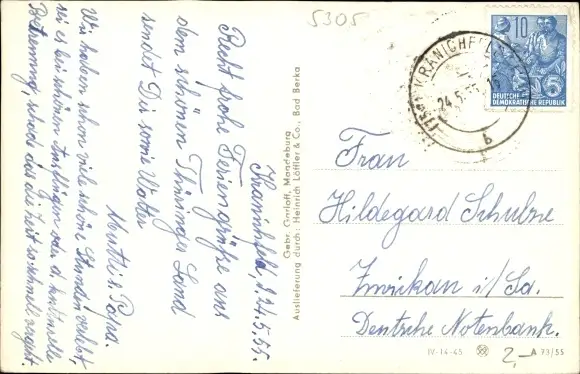 5305
Kranichfeld, d. 24.5.55.
Recht frohe Feriengrüße aus
dem schönen Thüringer Land
sendet Dir sowie Walter
Mutti u. Papa.
Wir haben schon viele schöne Stunden verlebt,
sei es bei schönen Ausflügen oder d. kulturelle
Betreuung, schade das die Zeit so schnell vergeht.
Gebr. Garloff, Magdeburg
Auslieferung durch: Heinrich Löffler & Co., Bad Berka
10
5
DEUTSCHE
DEMOKRATISCHE REPUBLIK
KRANICHFELD
24.5.55
b
Frau
Hildegard Schulze
Zwickau i/Sa.
Deutsche Notenbank.
IV-14-45
A 79/55
2,-